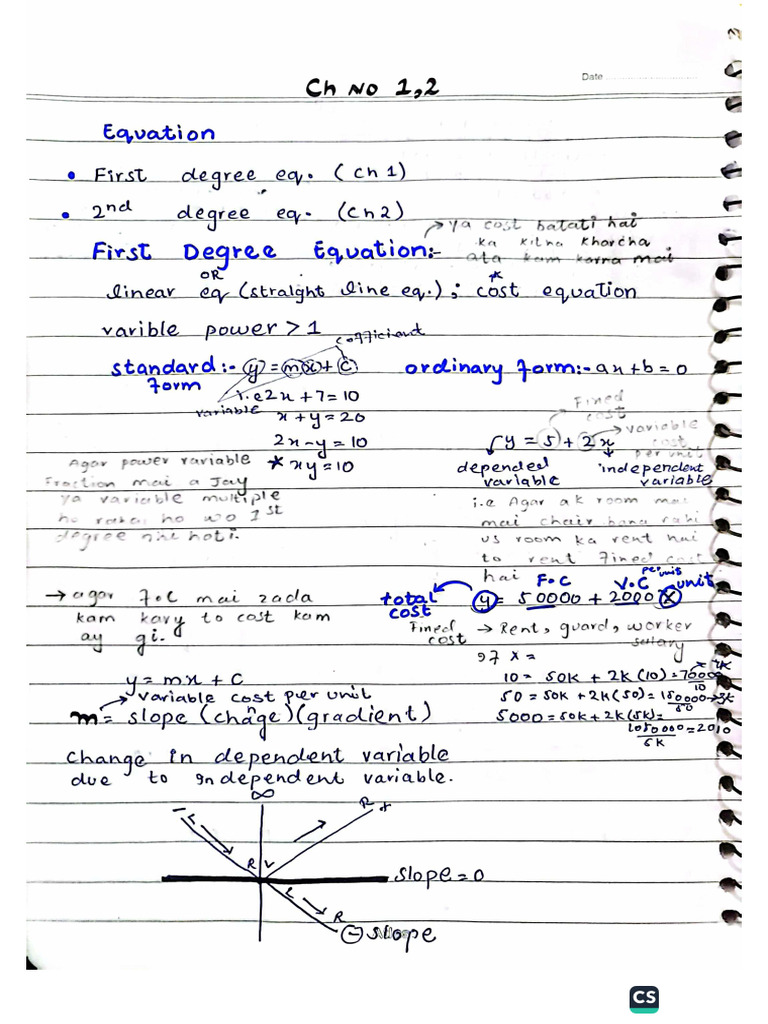 Date
Ch No 1,2
Equation
• First degree eq. (Ch 1)
• 2nd degree eq. (Ch2)
→ ya cost batati hai
ka kitna kharcha
ata kam karna mai
First Degree Equation:-
OR
linear eq (straight line eq.) ; cost equation
varible power > 1
coefficient
standard :- y = mx + c
form
ordinary form:- ax + b = 0
i.e 2x + 7 = 10
variable
x + y = 20
2x - y = 10
* xy = 10
Agar power variable
Fraction mai a Jay
ya variable multiple
ho raha ho wo 1st
degree nhe hoti.
Fixed
cost
variable
cost
per unit
y = 5 + 2x
depended
variable
independent
variable
i.e Agar ak room mai
mai chair bana rahi
us room ka rent hai
to rent fixed cost
hai
→ agar F.C mai zada
kam kary to cost kam
ay gi.
F.C
V.C per unit
unit
total
cost
y = 50000 + 2000 X
Fixed
cost
→ Rent, guard, worker
salary
97 x =
10 = 50K + 2K (10) = 70000 = 7K
10
50 = 50K + 2K (50) = 150000 → 3K
50
5000 = 50K + 2K (5K) =
1050000 = 2010
5K
y = mx + c
→ variable cost per unit
m = slope (change) (gradient)
change in dependent variable
due to independent variable.
∞
- L R
L R +
slope = 0
L R
- slope
CS